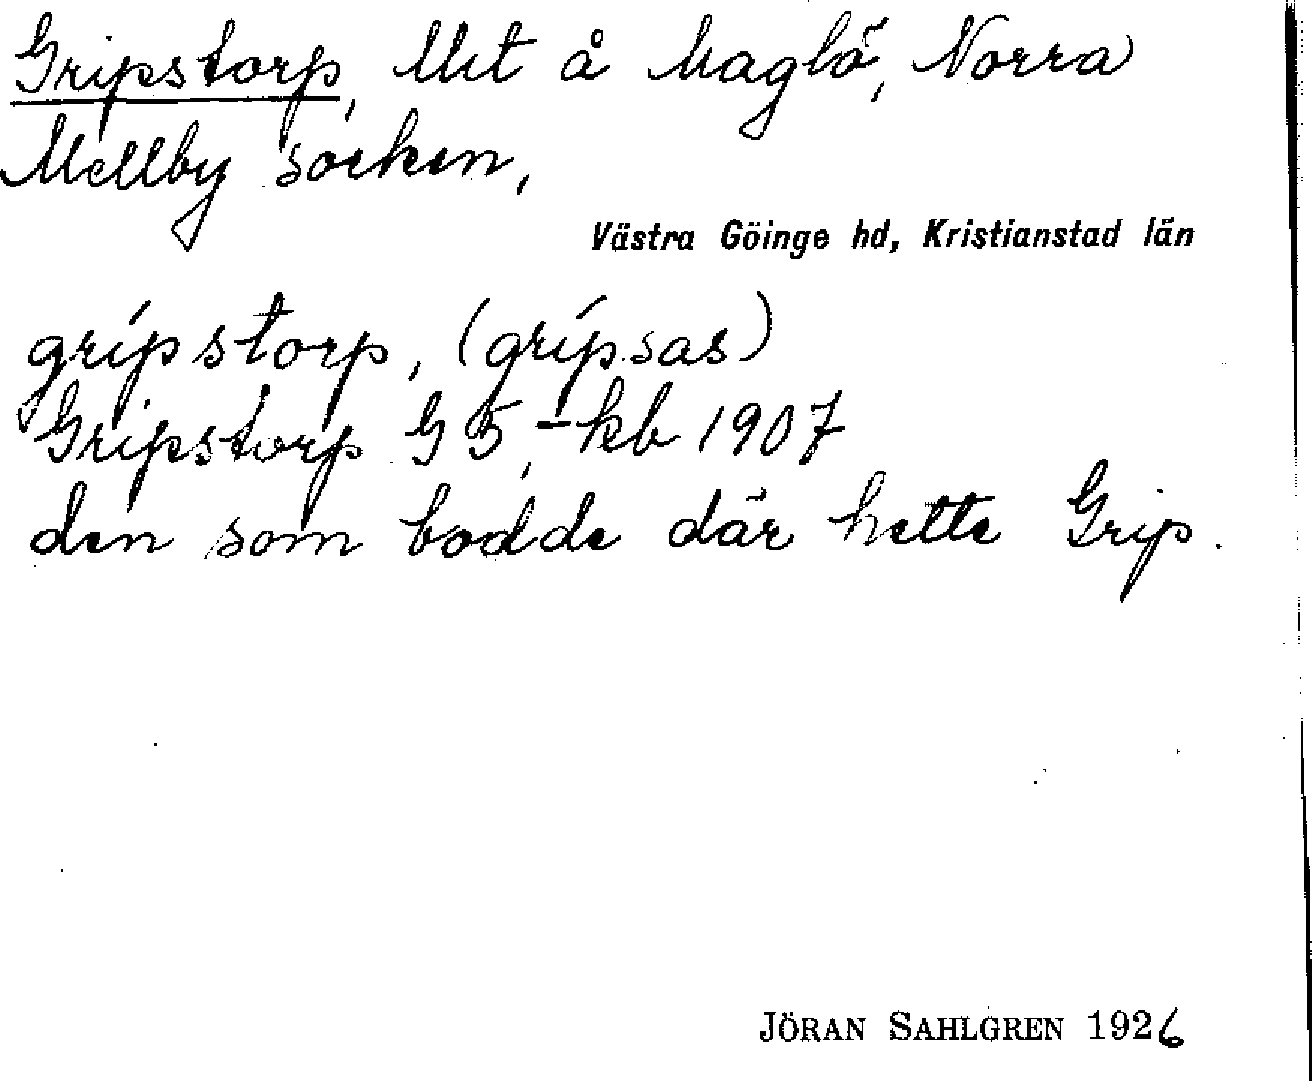 Gripstorp, lht å Maglö, Norra
Mellby socken,
Västra Göinge hd, Kristianstad län
grípstorp, (grípsas)
Gripstorp G 5, -kb 1907
den som bodde där hette Grip.
JÖRAN SAHLGREN 1926